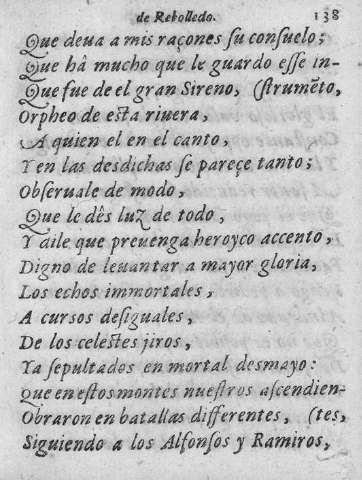 de Rebolledo. 138
Que deua a mis raçones ſu conſuelo;
Que hâ mucho que le guardo eſſe in-
Que fue de el gran Sireno, (ſtrumẽto,
Orpheo de eſta riuera,
A quien el en el canto,
Y en las desdichas ſe pareçe tanto;
Obſeruale de modo,
Que le dês luz de todo,
Y aile que preuenga heroyco accento,
Digno de leuantar a mayor gloria,
Los echos immortales,
A cursos deſiguales,
De los celeſtes jiros,
Ya ſepultados en mortal desmayo:
Que en eſtos montes nueſtros aſcendien-
Obraron en batallas differentes, (tes,
Siguiendo a los Alfonſos y Ramiros,